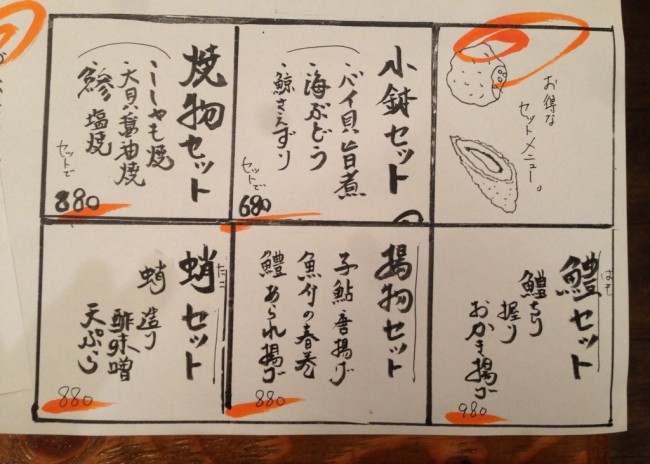 お得な
セットメニュー。
小鉢セット
・バイ貝旨煮
・海ぶどう
・鯨さえずり
セットで
680
焼物セット
・ししゃも焼
・大貝醤油焼
・鯵塩焼
セットで
880
鱧セット
はも
鱧ちり
握り
おかき揚げ
980
揚物セット
子鮎唐揚げ
魚付の春巻
鱧あられ揚げ
880
蛸セット
たこ
蛸造り
酢味噌
天ぷら
880